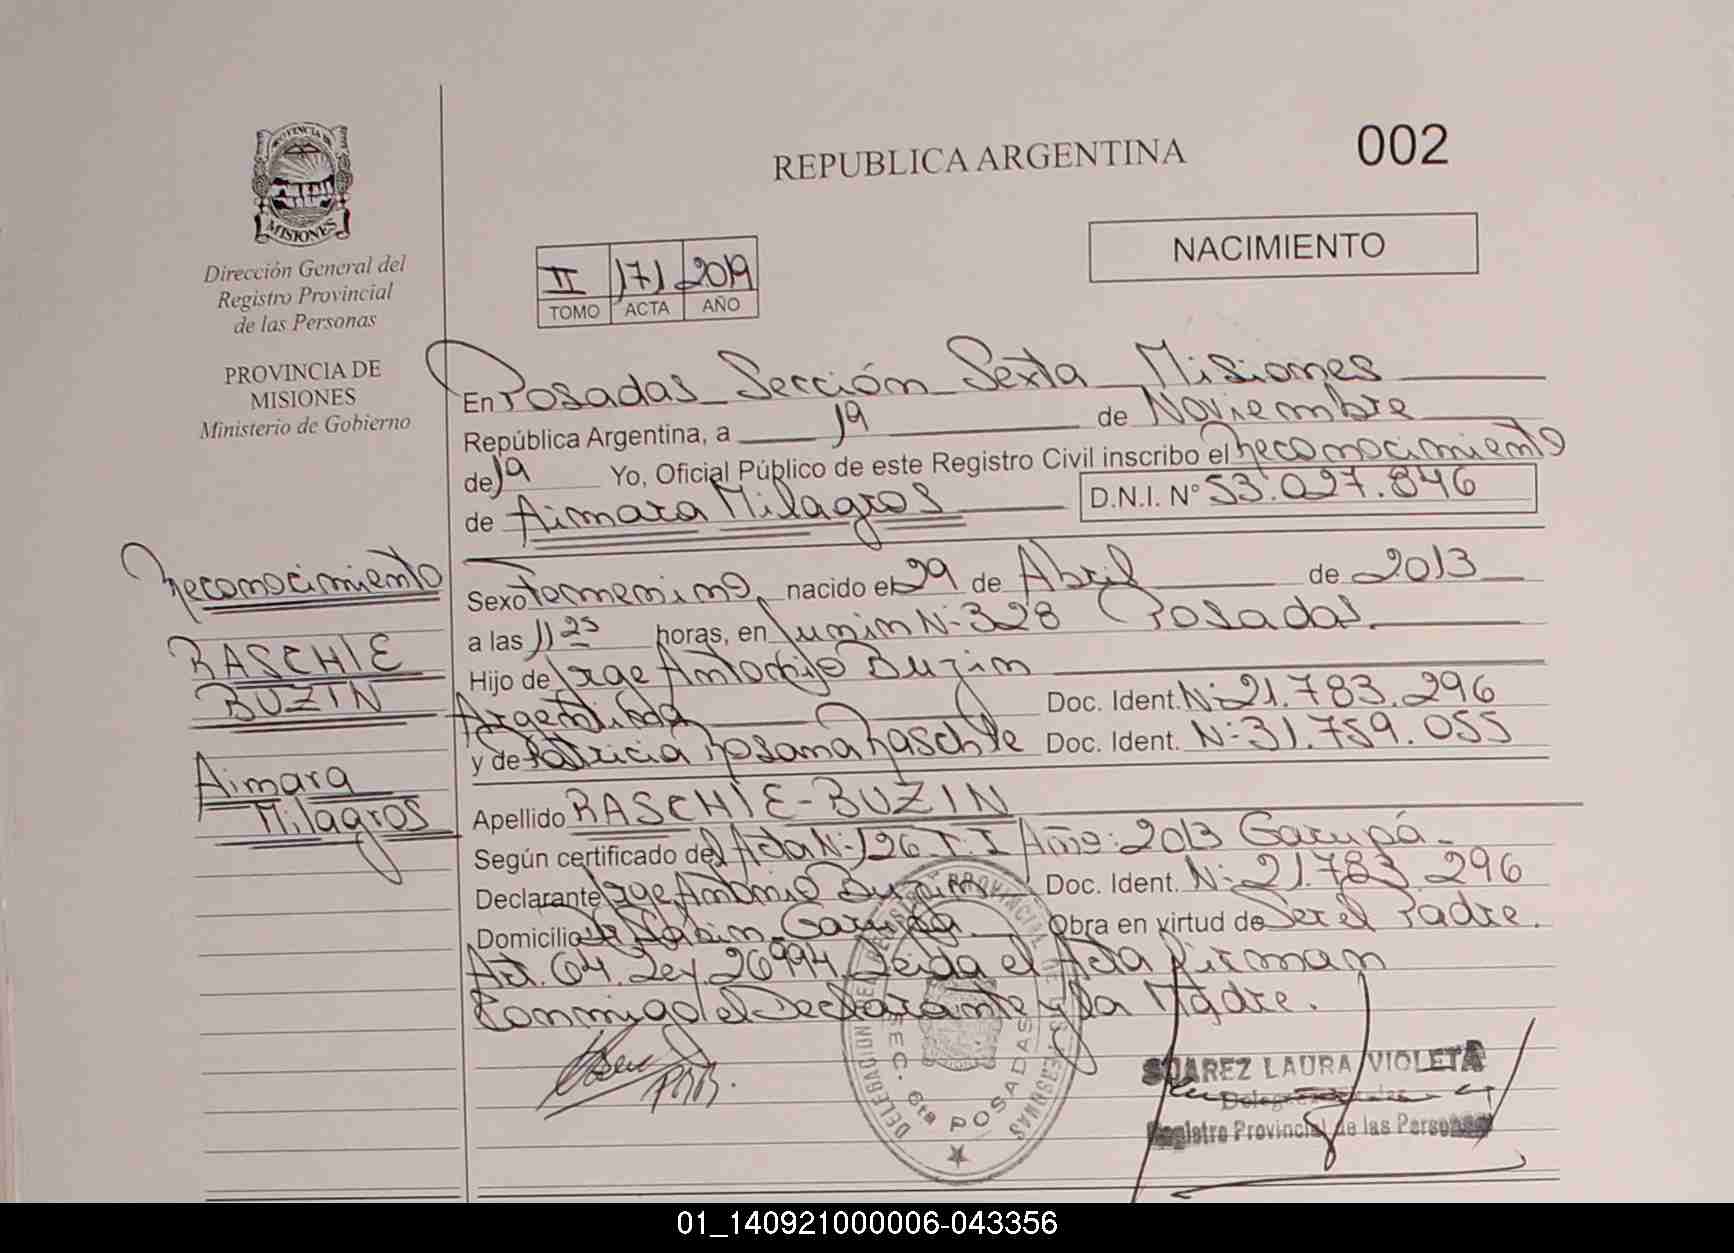 PROVINCIA DE
MISIONES
Dirección General del
Registro Provincial
de las Personas
PROVINCIA DE
MISIONES
Ministerio de Gobierno
REPUBLICA ARGENTINA
002
NACIMIENTO
II 171 2019
TOMO ACTA AÑO
En Posadas Sección Sexta Misiones
República Argentina, a 19 de Noviembre
de 19 Yo, Oficial Público de este Registro Civil inscribo el Reconocimiento
de Aimara Milagros D.N.I. N° 53.027.846
Reconocimiento
RASCHLE
BUZIN
Aimara
Milagros
Sexo Femenino, nacido el 29 de Abril de 2013
a las 11 25 horas, en Junin N-328 Posadas.
Hijo de Jorge Antonio Buzin
Argentina Doc. Ident. N-21.783.296
y de Patricia Rosana Raschle Doc. Ident. N-31.759.055
Apellido RASCHLE-BUZIN
Según certificado del Acta N-126 T.I Año: 2013 Garupá-
Declarante Jorge Antonio Buzin Doc. Ident. N-21.783.296
Domicilio Garupá. Obra en virtud de Ser el Padre.
Art. 64. Ley. 26994. Leida el Acta firman
Conmigo el Declarante y la Madre.
DELEGACION DEL REGISTRO PROVINCIAL DE LAS PERSONAS
SEC. 6ta POSADAS
SUAREZ LAURA VIOLETA
Registro Provincial de las Personas
01_140921000006-043356